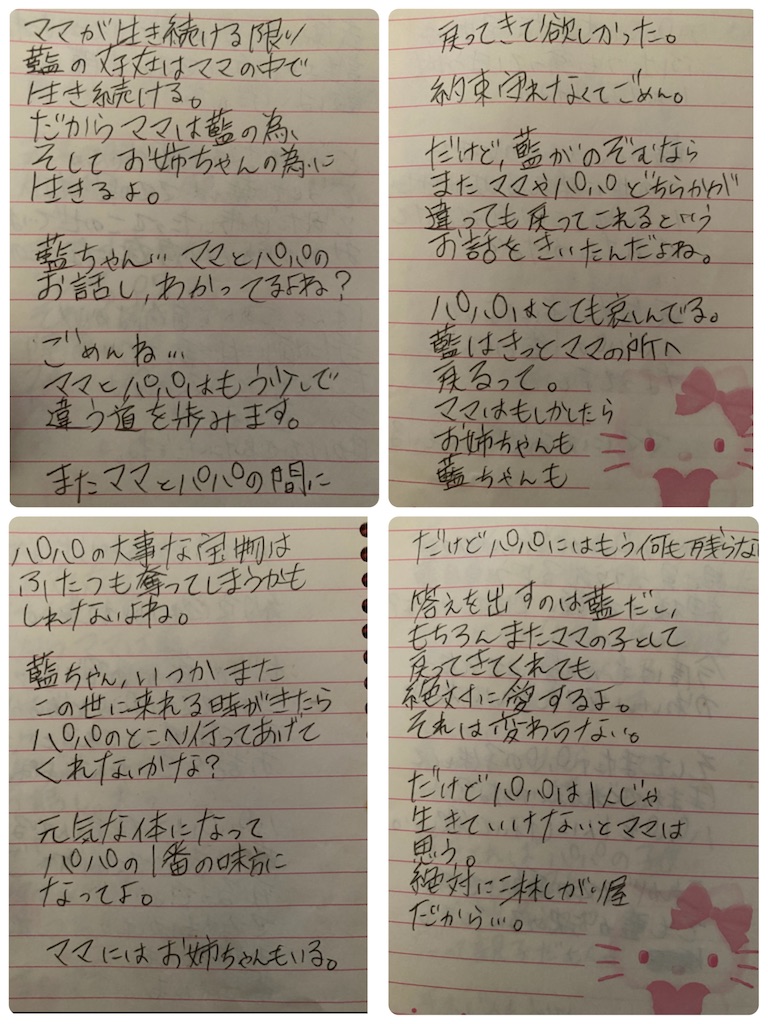 ママが生き続ける限り
藍の存在はママの中で
生き続ける。
だからママは藍の為、
そしてお姉ちゃんの為に
生きるよ。
藍ちゃん…ママとパパの
お話し、わかってるよね?
ごめんね…
ママとパパはもう少しで
違う道を歩みます。
またママとパパの間に
戻ってきて欲しかった。
約束守れなくてごめん。
だけど、藍がのぞむなら
またママやパパどちらかが
違っても戻ってこれるという
お話をきいたんだよね。
パパはとても哀しんでる。
藍はきっとママの所へ
戻るって。
ママはもしかしたら
お姉ちゃんも
藍ちゃんも
パパの大事な宝物は
ふたつも奪ってしまうかも
しれないよね。
藍ちゃん、いつかまた
この世に来れる時がきたら
パパのとこへ行ってあげて
くれないかな?
元気な体になって
パパの1番の味方に
なってよ。
ママにはお姉ちゃんもいる。
だけどパパにはもう何も残らない
答えを出すのは藍だし、
もちろんまたママの子として
戻ってきてくれても
絶対に愛するよ。
それは変わらない。
だけどパパは1人じゃ
生きていけないとママは
思う。
絶対に淋しがり屋
だから…。